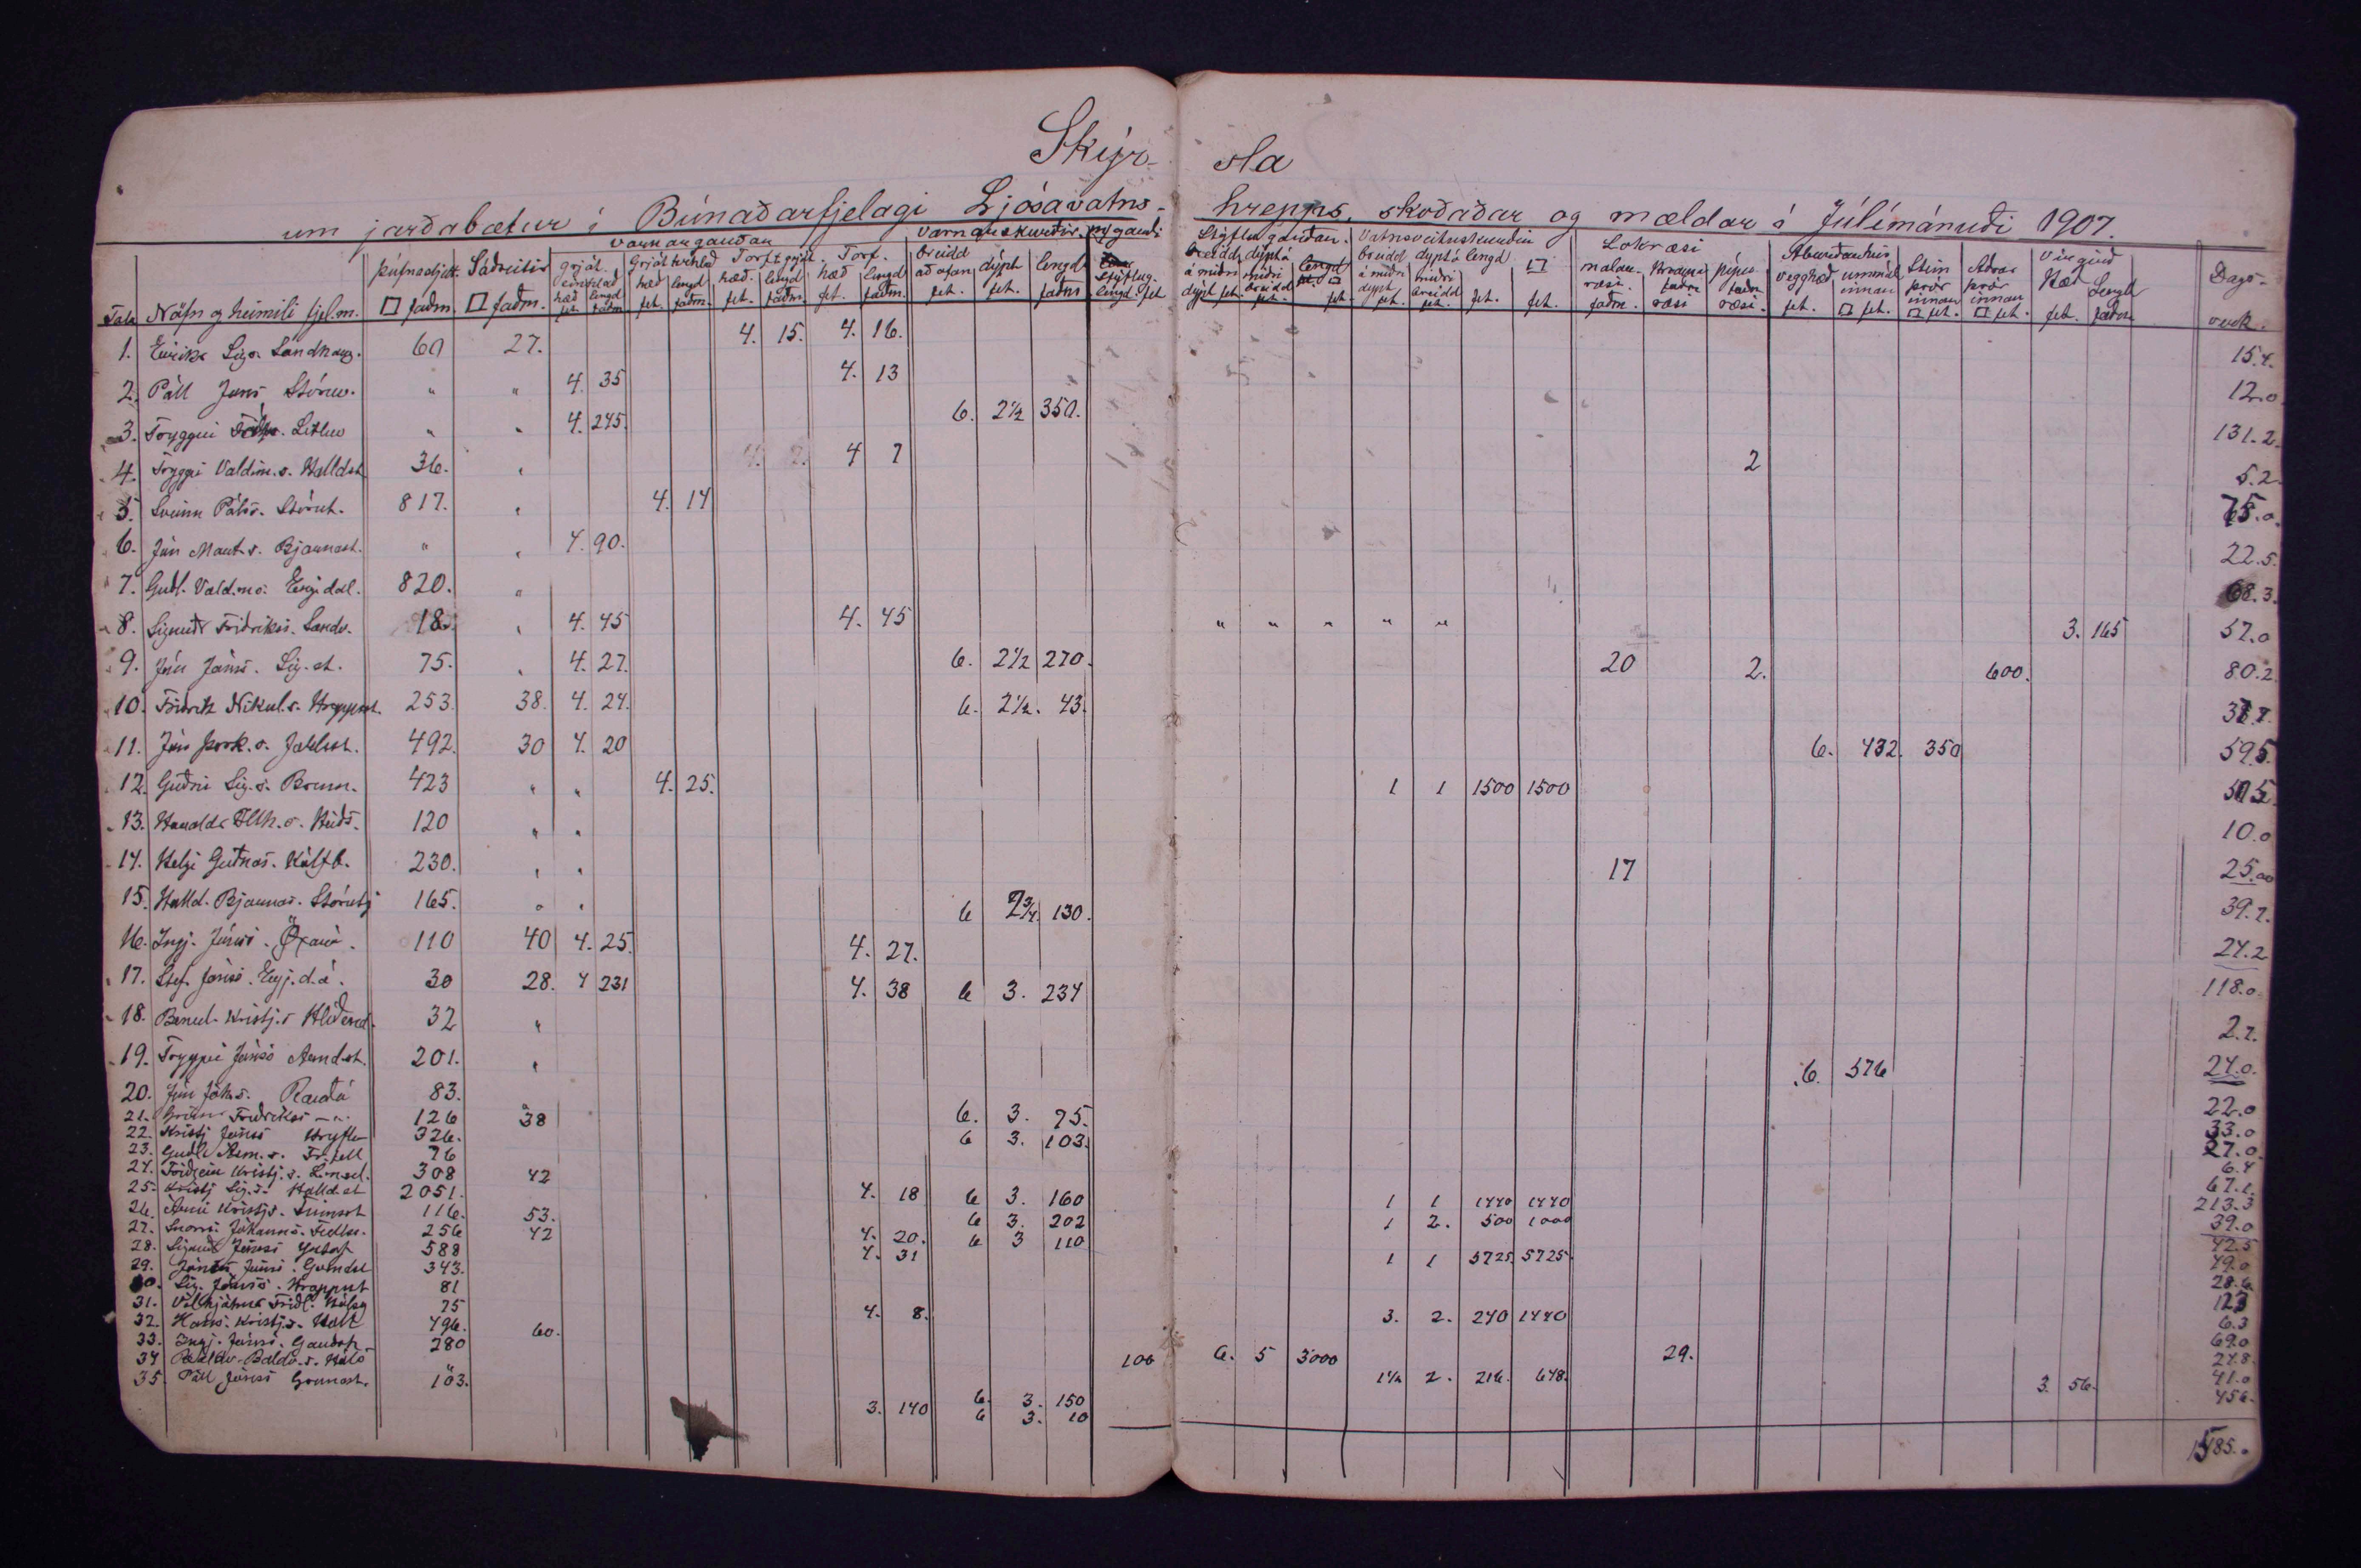 Skýr- sla
um jarðabætur í Búnaðarfjelagi Ljósavatns- hrepps, skoðaðar og mældar í Júlímánuði 1907.
Tala Nöfn og heimili fjel.m. þúfnasljett. □ faðm. Sáðreitir □ faðm. Varnargarðar grjót. einhlað hæð fet. lengd faðm. Grjót tvíhlað hæð fet. lengd faðm. Torf & grjót. hæð. fet. lengd faðm. Torf. hæð fet. lengd faðm. Varnarskurðir. breidd að ofan fet. dýpt fet. lengd faðm lengd. fet
Stýflugarðar. breidd á miðri dýpt fet. dýpt á miðri breidd fet. lengd fet. Vatnsveituskurðir breidd á miðri dýpt fet. dýpt á miðri breidd fet. lengd fet. □ fet. Lokræsi malar. ræsi. faðm. ræsi pípu ræsi. Áburðarhús vegghæð fet. ummál innan □ fet. Stein þrór innan □ fet. Aðrar þrór innan □ fet. Vírgirð Hæð fet. Lengd faðm Dags- verk.
1. Eirikr Sigs. Landhaug. 60 27. 4. 15. 4. 16. 15.4.
2. Páll Jóns Stóruv. " " 4. 35 4. 13 12.0
3. Tryggvi Litluv " " 4. 245. 6. 2½ 350. 131.2.
4. Tryggvi Valdim.s. Halldst. 36. " 4 7 2 5.2
5. Sveinn Páls. Stórut. 817. " 4. 14 75.0.
6. Jón Mart.s. Bjarnast. " " 4. 90. 22.5.
7. Guðl. Vald.ms. Engidal. 820. " 68.3.
8. Sigurðr Friðrikss. Landv. 18. " 4. 45 4. 45 " " " " " 3. 165 57.0
9. Jón Jónss. Sig.st. 75. " 4. 27. 6. 2½ 270. 20 2. 600. 80.2
10. Friðrik Nikul.s. Hrappst. 253. 38. 4. 24. 6. 2½. 43.
11. Jón Þork.s. Jarlsst. 492. 30 4. 20 6. 432. 350 59.5
12. Guðni Sig.s. Brunn. 423 " " 4. 25. 1 1 1500 1500
13. 120 " " 10.0
14. Helgi Guðnas. Kálfb. 230. " " 17 25.00
15. Halld. Bjarnas. Stórutj 165. " " 6 2¾ 130. 39.7.
16. Ingj. Jónss. Öxará. 110 40 4. 25. 4. 27. 24.2
17. Stef. Jónss. Eyj.d.á. 30 28. 4 231 4. 38 6 3. 234 118.0
18. Bened. Kristj.s Hlíðend. 32 " 2.7.
19. Tryggvi Jónss Arnd.st. 201. " 6. 576 24.0.
20. Jón Jóh.s. Rauðá 83. 22.0
21. Friðrikss — " 126 38 6. 3. 75. 33.0
22. Kristj Jónss 326. 6 3. 103. 27.0
23. Guðl. Ásm.s. Fr.fell 76 6.4
24. Friðgeir Kristj.s. 308 42 67.1.
25. Kristj Sig.s. Halld.st 2051. 4. 18 6 3. 160 1 1 1440 1440 213.3
26. Árni Kristjs. Finnsst 116. 53. 6 3. 202 1 2. 500 1000 39.0
27. Snorri Jóhanns. 256 42 4. 20. 6 3 110 42.5
28. Sigurðr Jónss Yztaf 588 4. 31 1 1 5725. 5725. 49.0
29. Jónss. 343. 28.6
30. Sig. Jónss. Hrappst 81 12.3
31. Vilhjálmr Friðl. 75 4. 8. 3. 2. 240 1440 6.3
32. Hans. Kristj.s. Holt 496. 60. 69.0
33. Ingj. Jónss. 280 100 6. 5 3000 29. 24.8.
34 Baldv. Baldv.s. " 1½ 2. 216. 648. 41.0
35. Páll Jónss Grænast. 103. 3. 140 6. 3. 150 6 3. 10 3. 56. 45.6.
1585.0